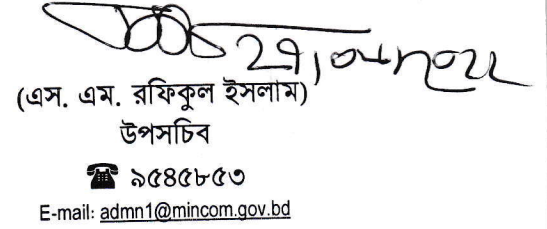 (এস. এম. রফিকুল ইসলাম)
উপসচিব
☎ ৯৫৪৫৮৫৩
E-mail: admn1@mincom.gov.bd